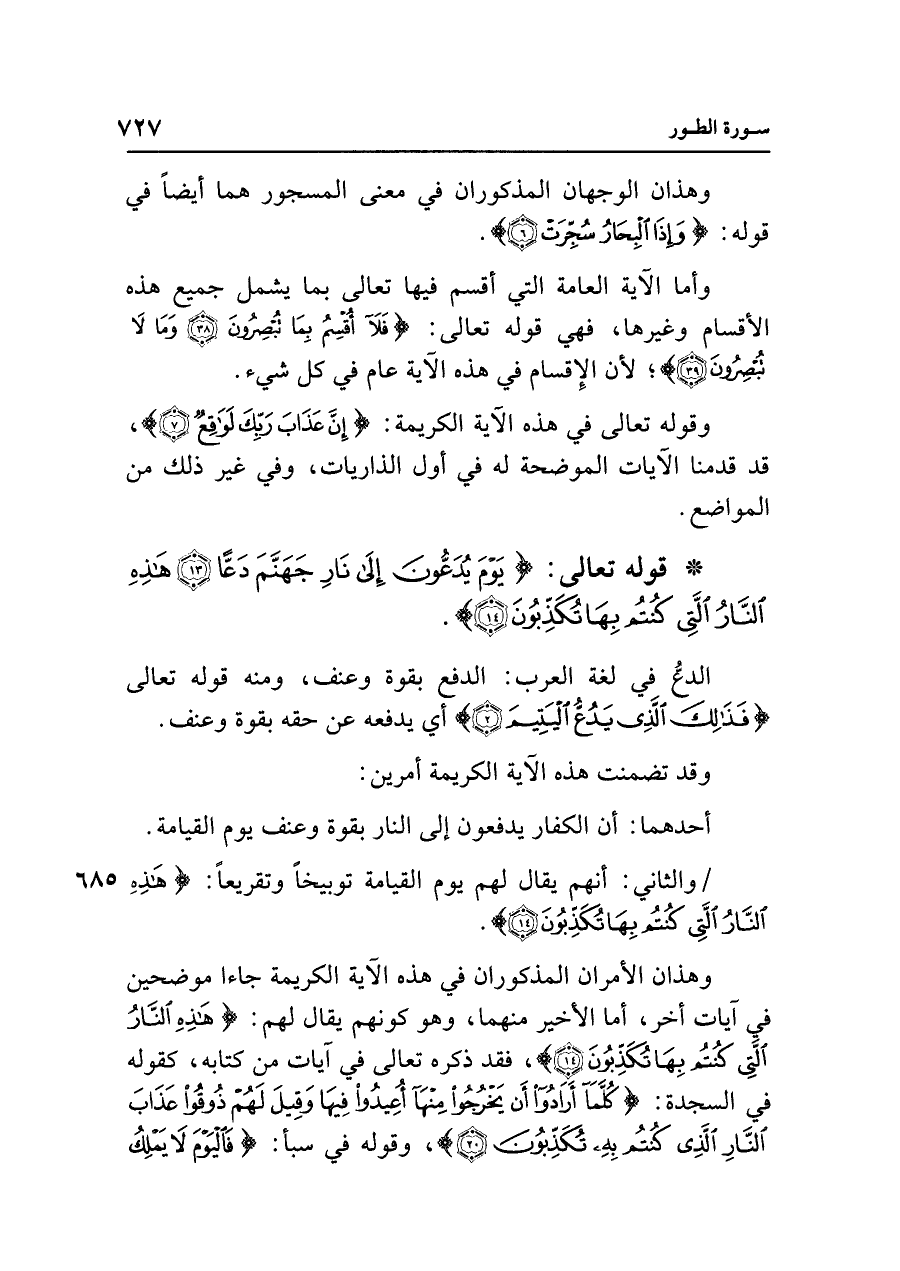 سـورة الطـور ٧٢٧
وهذان الوجهان المذكوران في معنى المسجور هما أيضاً في
قوله: ﴿ وَإِذَا ٱلْبِحَارُ سُجِّرَتْ ۝٦﴾.
وأما الآية العامة التي أقسم فيها تعالى بما يشمل جميع هذه
الأقسام وغيرها، فهي قوله تعالى: ﴿فَلَآ أُقْسِمُ بِمَا تُبْصِرُونَ ۝٣٨ وَمَا لَا
تُبْصِرُونَ ۝٣٩﴾؛ لأن الإِقسام في هذه الآية عام في كل شيء.
وقوله تعالى في هذه الآية الكريمة: ﴿ إِنَّ عَذَابَ رَبِّكَ لَوَٰقِعٌ ۝٧﴾،
قد قدمنا الآيات الموضحة له في أول الذاريات، وفي غير ذلك من
المواضع.
* قوله تعالى: ﴿ يَوْمَ يُدَعُّونَ إِلَىٰ نَارِ جَهَنَّمَ دَعًّا ۝١٣ هَٰذِهِ
ٱلنَّارُ ٱلَّتِي كُنتُم بِهَا تُكَذِّبُونَ ۝١٤﴾.
الدعُّ في لغة العرب: الدفع بقوة وعنف، ومنه قوله تعالى
﴿ فَذَٰلِكَ ٱلَّذِى يَدُعُّ ٱلْيَتِيمَ ۝٢﴾ أي يدفعه عن حقه بقوة وعنف.
وقد تضمنت هذه الآية الكريمة أمرين:
أحدهما: أن الكفار يدفعون إلى النار بقوة وعنف يوم القيامة.
/ والثاني: أنهم يقال لهم يوم القيامة توبيخاً وتقريعاً: ﴿ هَٰذِهِ ٦٨٥
ٱلنَّارُ ٱلَّتِي كُنتُم بِهَا تُكَذِّبُونَ ۝١٤﴾.
وهذان الأمران المذكوران في هذه الآية الكريمة جاءا موضحين
في آيات أخر، أما الأخير منهما، وهو كونهم يقال لهم: ﴿ هَٰذِهِ ٱلنَّارُ
ٱلَّتِي كُنتُم بِهَا تُكَذِّبُونَ ۝١٤﴾، فقد ذكره تعالى في آيات من كتابه، كقوله
في السجدة: ﴿ كُلَّمَآ أَرَادُوٓا۟ أَن يَخْرُجُوا۟ مِنْهَآ أُعِيدُوا۟ فِيهَا وَقِيلَ لَهُمْ ذُوقُوا۟ عَذَابَ
ٱلنَّارِ ٱلَّذِى كُنتُم بِهِۦ تُكَذِّبُونَ ۝٢٠﴾، وقوله في سبأ: ﴿ فَٱلْيَوْمَ لَا يَمْلِكُ